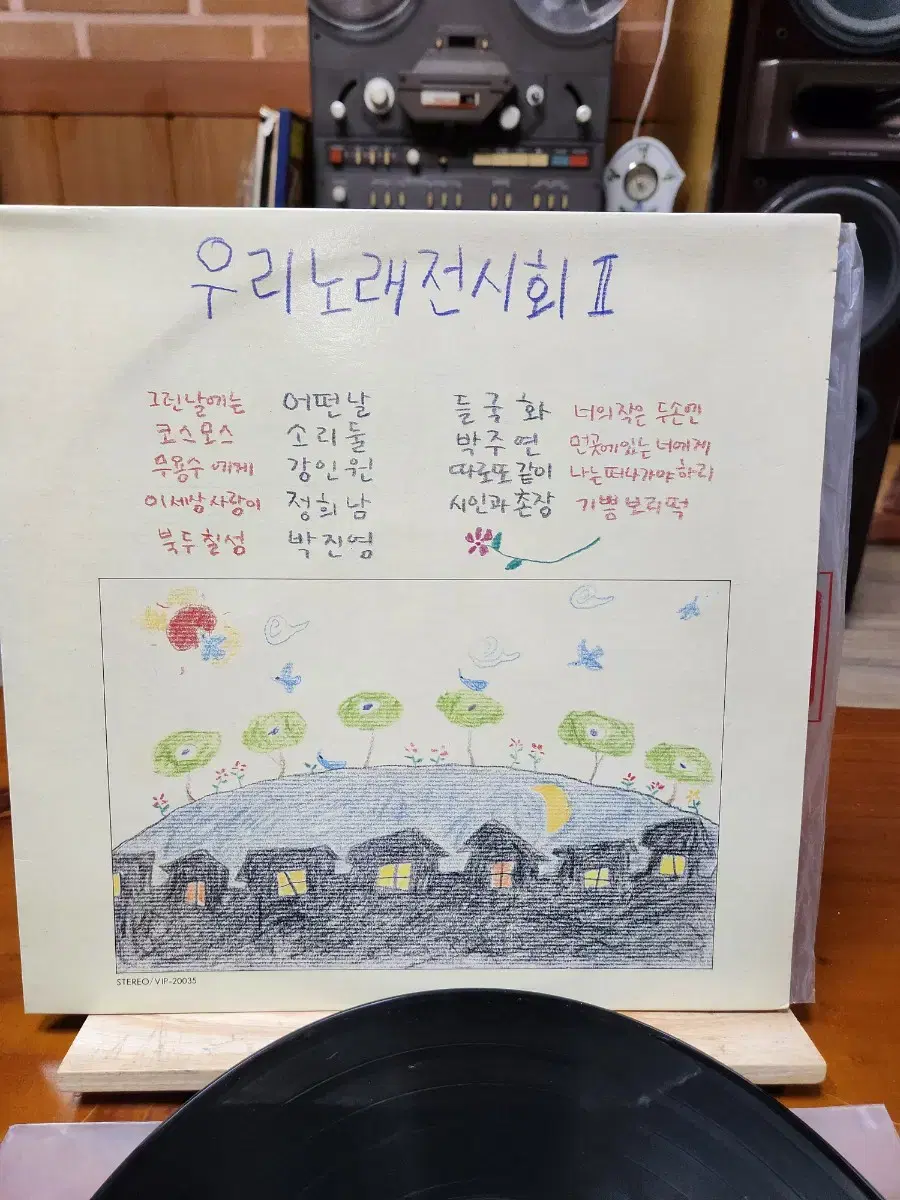 우리노래전시회 II
그린날에는 어떤날
코스모스 소리둘
무용수에게 강인원
이세상사랑이 정희남
북두칠성 박진영
들국화 너의작은두손엔
박주연 먼곳에있는너에게
따로또같이 나는떠나가야하리
시인과촌장 기쁨보리떡
STEREO/VIP-20035